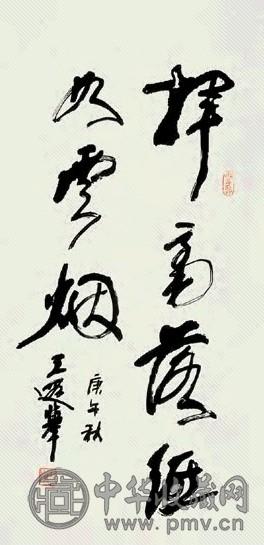 揮毫落紙
如雲烟
庚午秋
王遐举
中华收藏网
www.pmv.cn